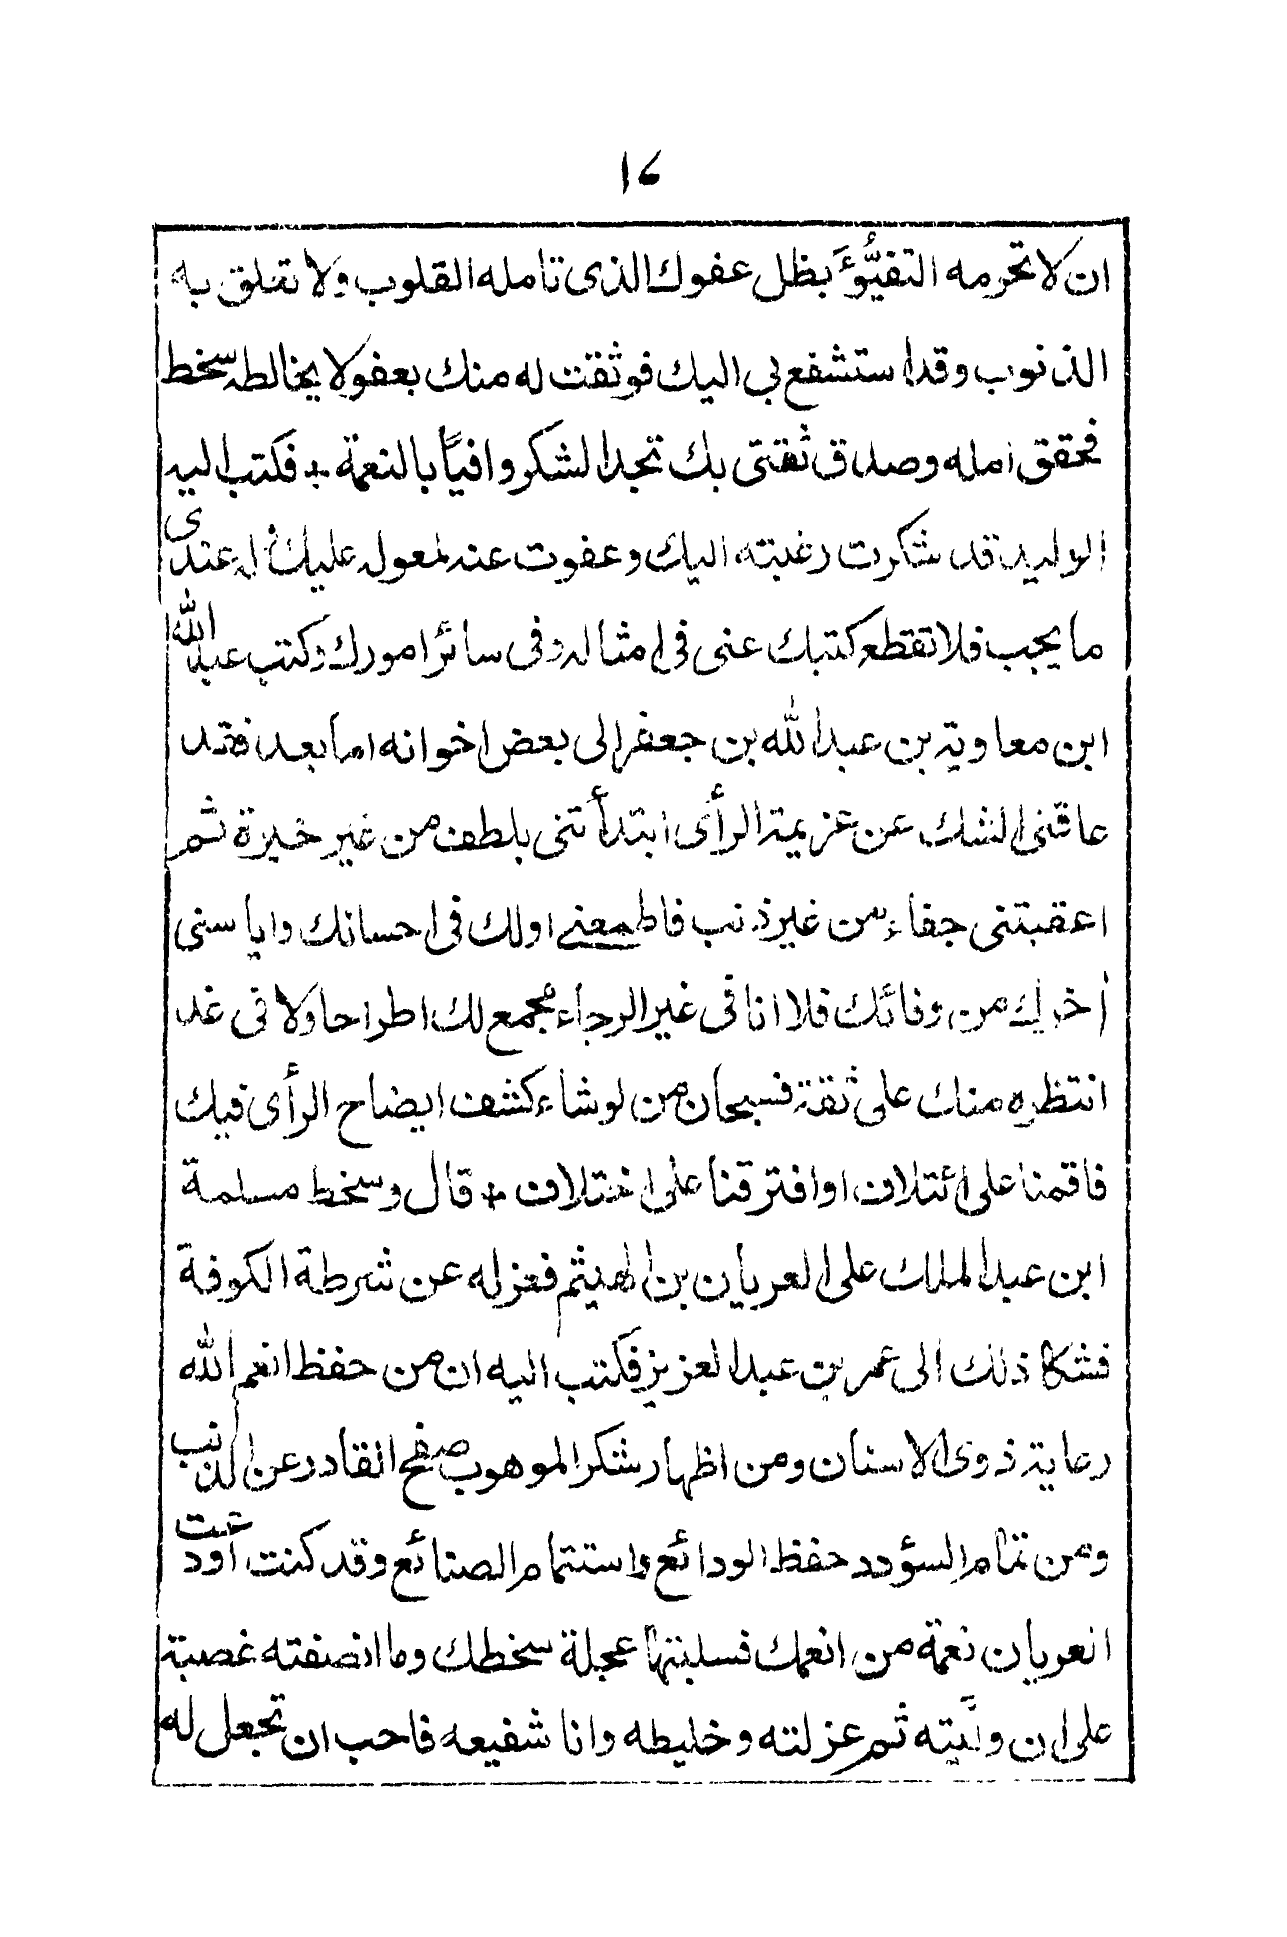 ١٤
ان لا تحرمه التفيُّؤَ بظل عفوك الذى تامله القلوب ولا تقلق به
الذنوب وقد استشفع بى اليك فوثقت له منك بعفو لا يخالطه سخط
فحقق امله وصدق ثقتى بك تجد الشكر وافياً بالنعمة + فكتب اليه
الوليد قد شكرت رغبته اليك وعفوت عنه لمعوله عليك له عندى
ما يجب فلا تقطع كتبك عنى فى امثاله وفى سائر امورك وكتب عبد الله
ابن معاوية بن عبد الله بن جعفر الى بعض اخوانه اما بعد فقد
عاقنى الشك عن عزيمة الرأى ابتدأتنى بلطف من غير خيرة ثم
اعقبتنى جفاء من غير ذنب فاطمعنى اولك فى احسانك واياسنى
أخرك من وفائك فلا انا فى غير الرجاء مجمع لك اطراحا ولا فى غد
انتظره منك على ثقة فسبحان من لو شاء كشف ايضاح الرأى فيك
فاقمنا على ائتلاف او افترقنا على اختلاف + قال وسخط مسلمة
ابن عبد الملك على العريان بن الهيثم فعزله عن شرطة الكوفة
فشكا ذلك الى عمر بن عبد العزيز فكتب اليه ان من حفظ انعم الله
رعاية ذوى الاسنان ومن اظهار شكر الموهوب صفح القادر عن الذنب
ومن تمام السؤدد حفظ الودائع واستتمام الصنائع وقد كنت اودعت
العريان نعمة من انعمك فسلبتها عجلة سخطك وما انصفته غصبته
على ان وليته ثم عزلته وخليطه وانا شفيعه فاحب ان تجعل له